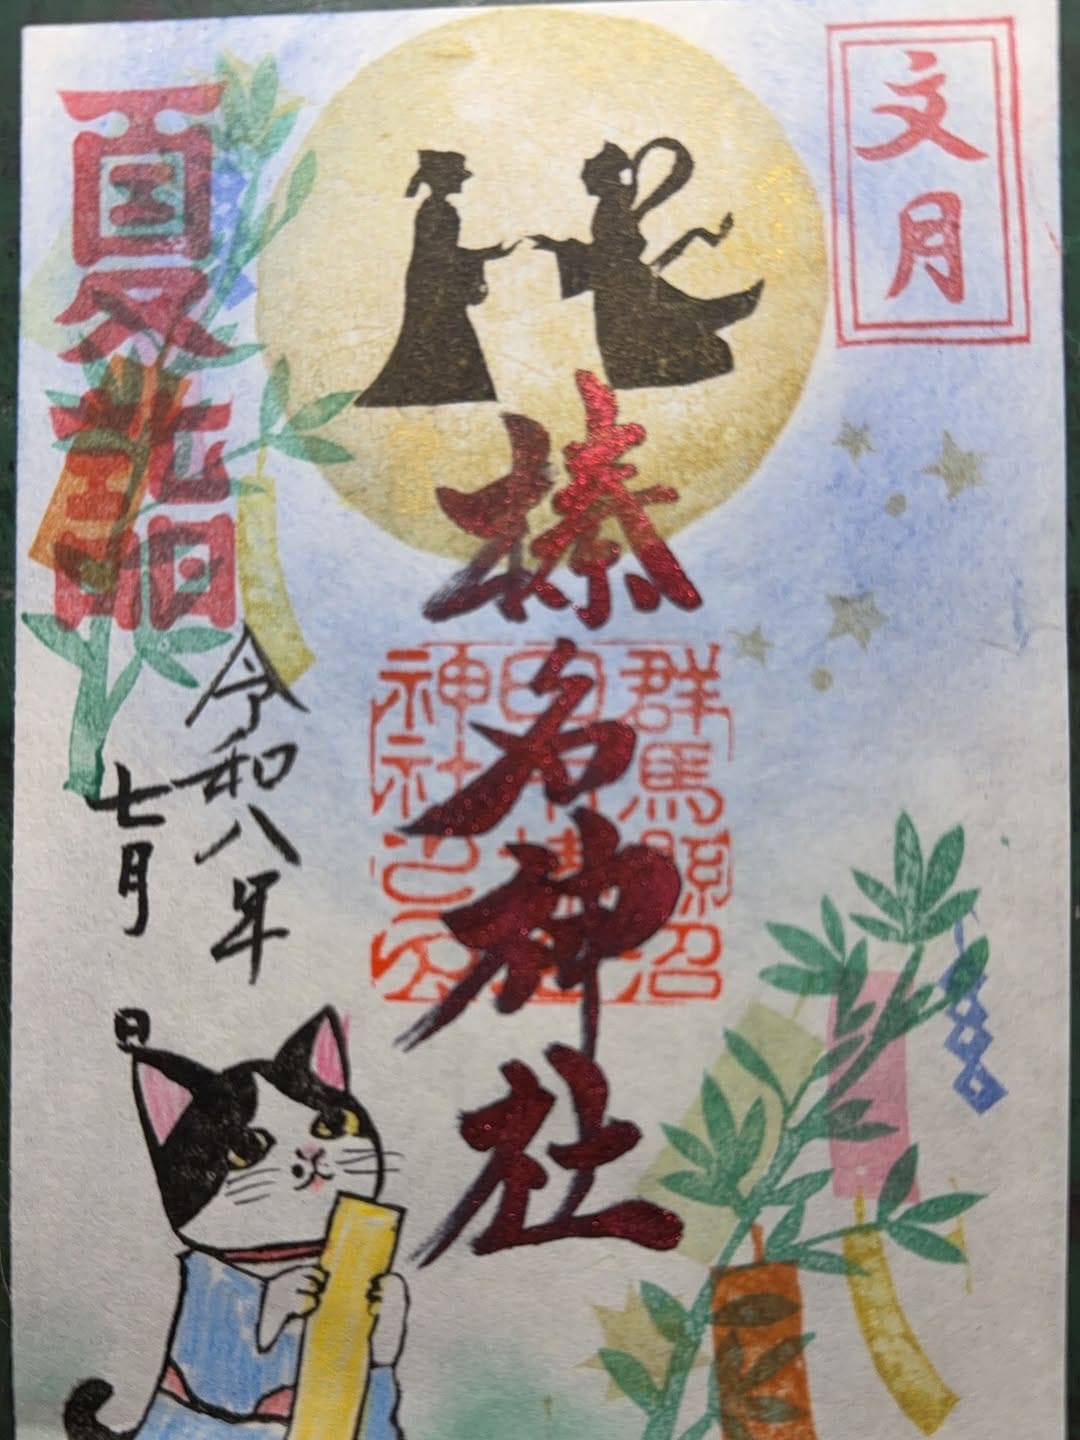 文月
榛名神社
群馬縣沼
神社之印
夏詣
令和八年
七月
日